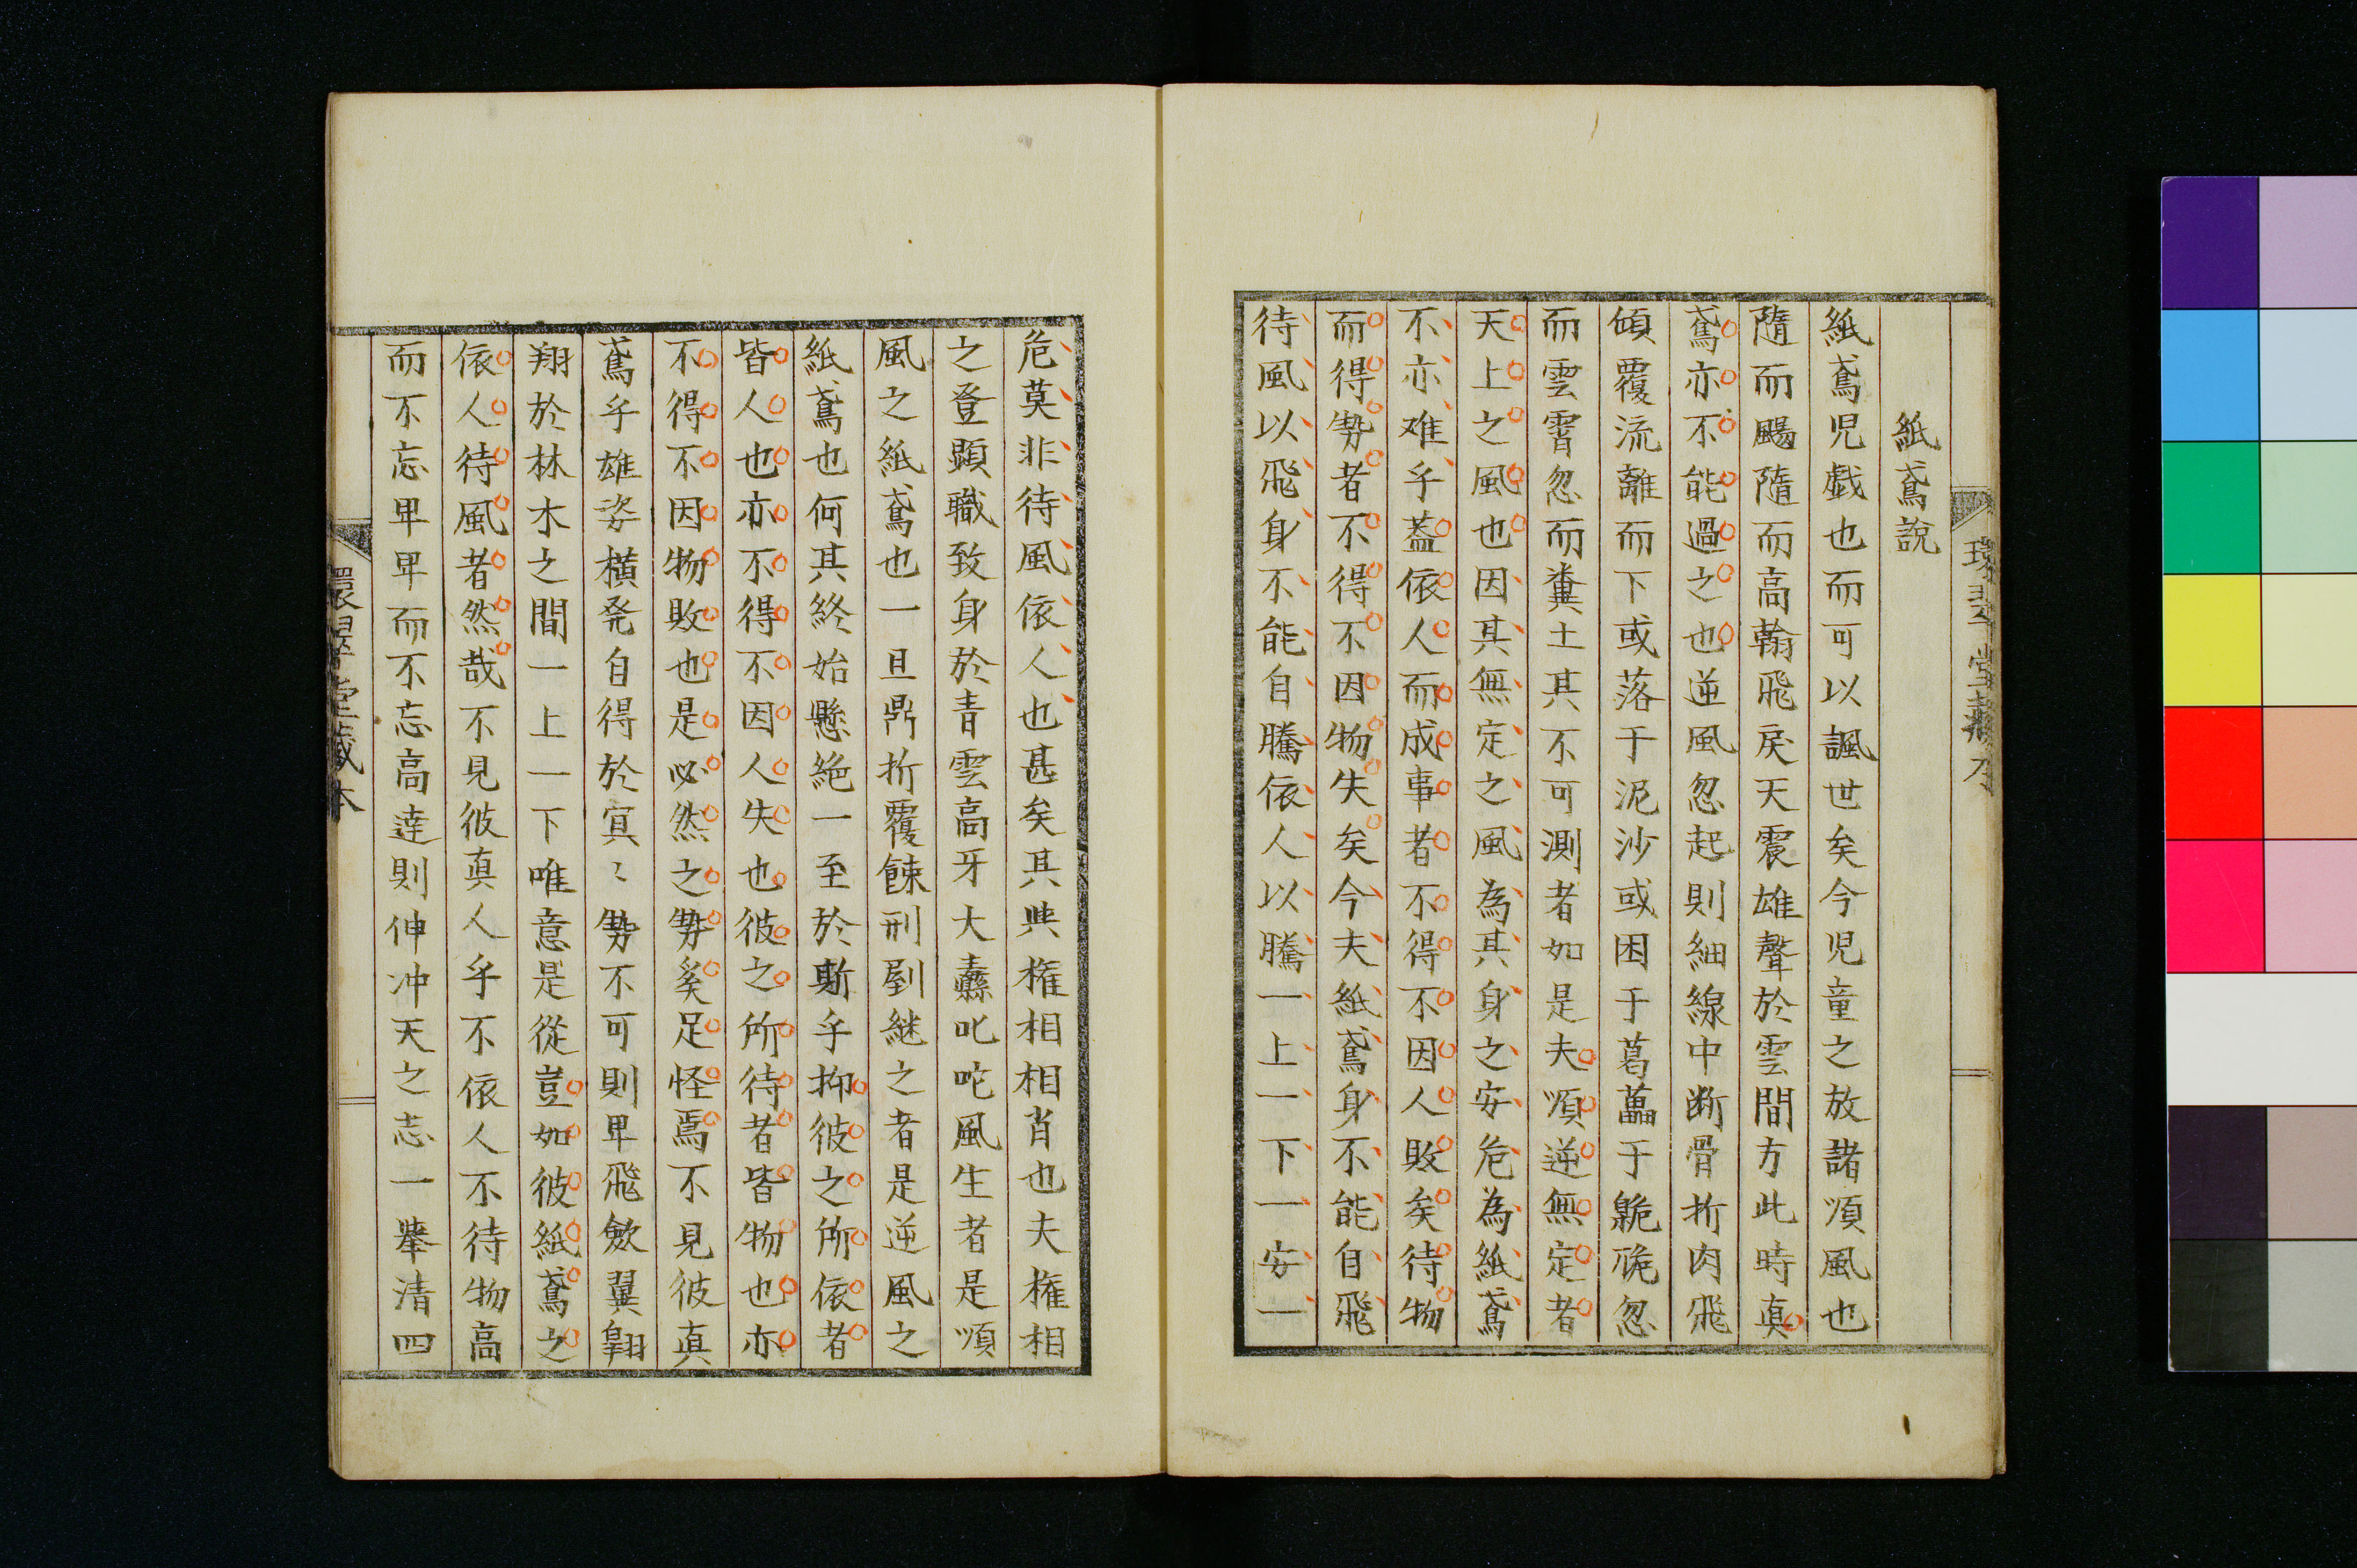 紙鳶說
紙鳶児戯也而可以諷世矣今児童之放諸順風也
隨而颺隨而高翰飛戾天震雄聲於雲間方此時真
鳶亦不能過之也逆風忽起則細線中断骨折肉飛
傾覆流離而下或落于泥沙或困于葛藟于臲卼忽
而雲霄忽而糞土其不可測者如是夫順逆無定者
天上之風也因其無定之風為其身之安危為紙鳶
不亦难乎蓋依人而成事者不得不因人敗矣待物
而得勢者不得不因物失矣今夫紙鳶身不能自飛
待風以飛身不能自騰依人以騰一上一下一安一
危莫非待風依人也甚矣其與権相相肖也夫権相
之登顕職致身於青雲高牙大纛叱咤風生者是順
風之紙鳶也一旦鼎折覆餗刑劉継之者是逆風之
紙鳶也何其終始懸絶一至於斯乎抑彼之所依者
皆人也亦不得不因人失也彼之所待者皆物也亦
不得不因物敗也是必然之勢奚足怪焉不見彼真
鳶乎雄姿横発自得於冥〻勢不可則卑飛歛翼翺
翔於林木之間一上一下唯意是從豈如彼紙鳶之
依人待風者然哉不見彼真人乎不依人不待物高
而不忘卑卑而不忘高達則伸冲天之志一舉清四
環翠堂藏本